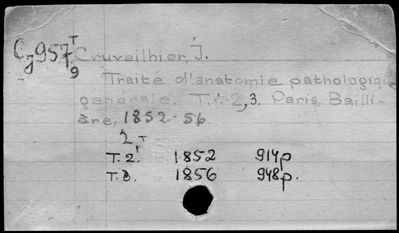 Cj957 T/9 Cruveilhier, J.
Traité d'anatomie pathologique
générale. T. 2,3. Paris, Bailli-
ère, 1852-56
2 T
T.2. 1852 914p
T.3. 1856 948p.